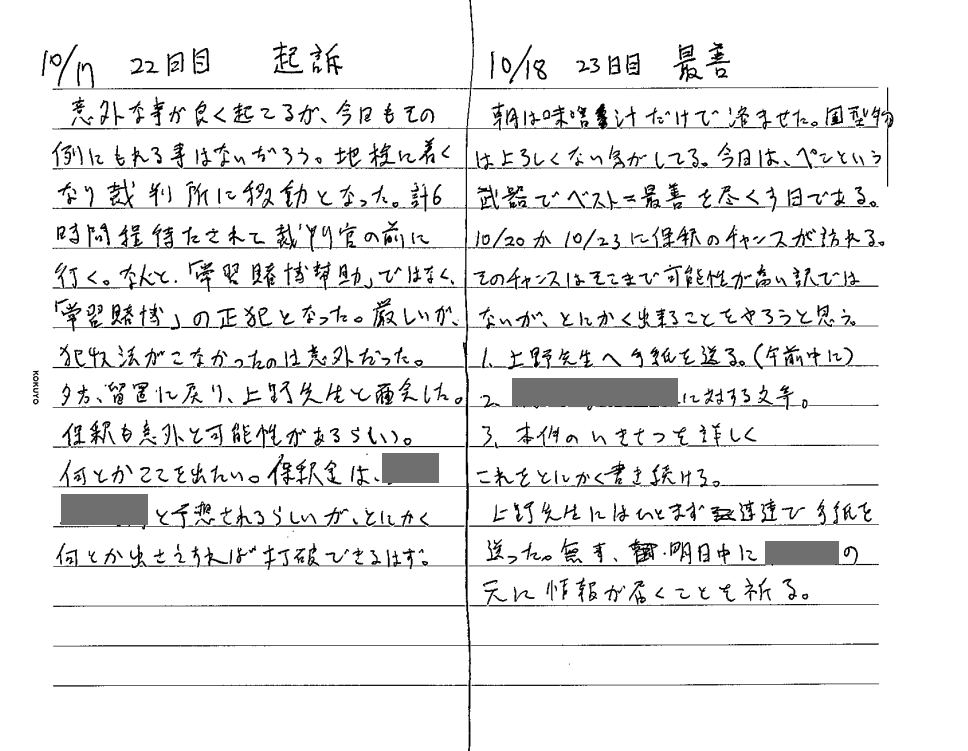 10/17 22日目 起訴
意外な事が良く起てるが、今日もその
例にもれる事はないだろう。地検に着く
なり裁判所に移動となった。計6
時間程待たされて裁判官の前に
行く。なんと、「常習賭博幇助」ではなく、
「常習賭博」の正犯となった。厳しいが、
犯収法がこなかったのは意外だった。
夕方、留置に戻り、上野先生と面会した。
保釈も意外と可能性があるらしい。
何とかここを出たい。保釈金は、
と予想されるらしいが、とにかく
何とか出さえすれば打破できるはず。
KOKUYO
10/18 23日目 最善
朝は味噌汁だけで済ませた。固型物
はよろしくない気がしてる。今日は、ペンという
武器でベスト=最善を尽くす日である。
10/20か10/23に保釈のチャンスが訪れる。
そのチャンスはそこまで可能性が高い訳では
ないが、とにかく出来ることをやろうと思う。
1. 上野先生へ手紙を送る。(午前中に)
2. に対する文章。
3. 本件のいきさつを詳しく
これをとにかく書き続ける。
上野先生にはひとまず速達で手紙を
送った。無事、明日中に の
元に情報が届くことを祈る。